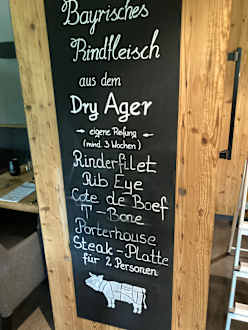 Bayrisches
Rindfleisch
aus dem
Dry Ager
eigene Reifung
(mind. 3 Wochen)
Rinderfilet
Rib Eye
Cote de Boef
T-Bone
Porterhouse
Steak-Platte
für 2 Personen